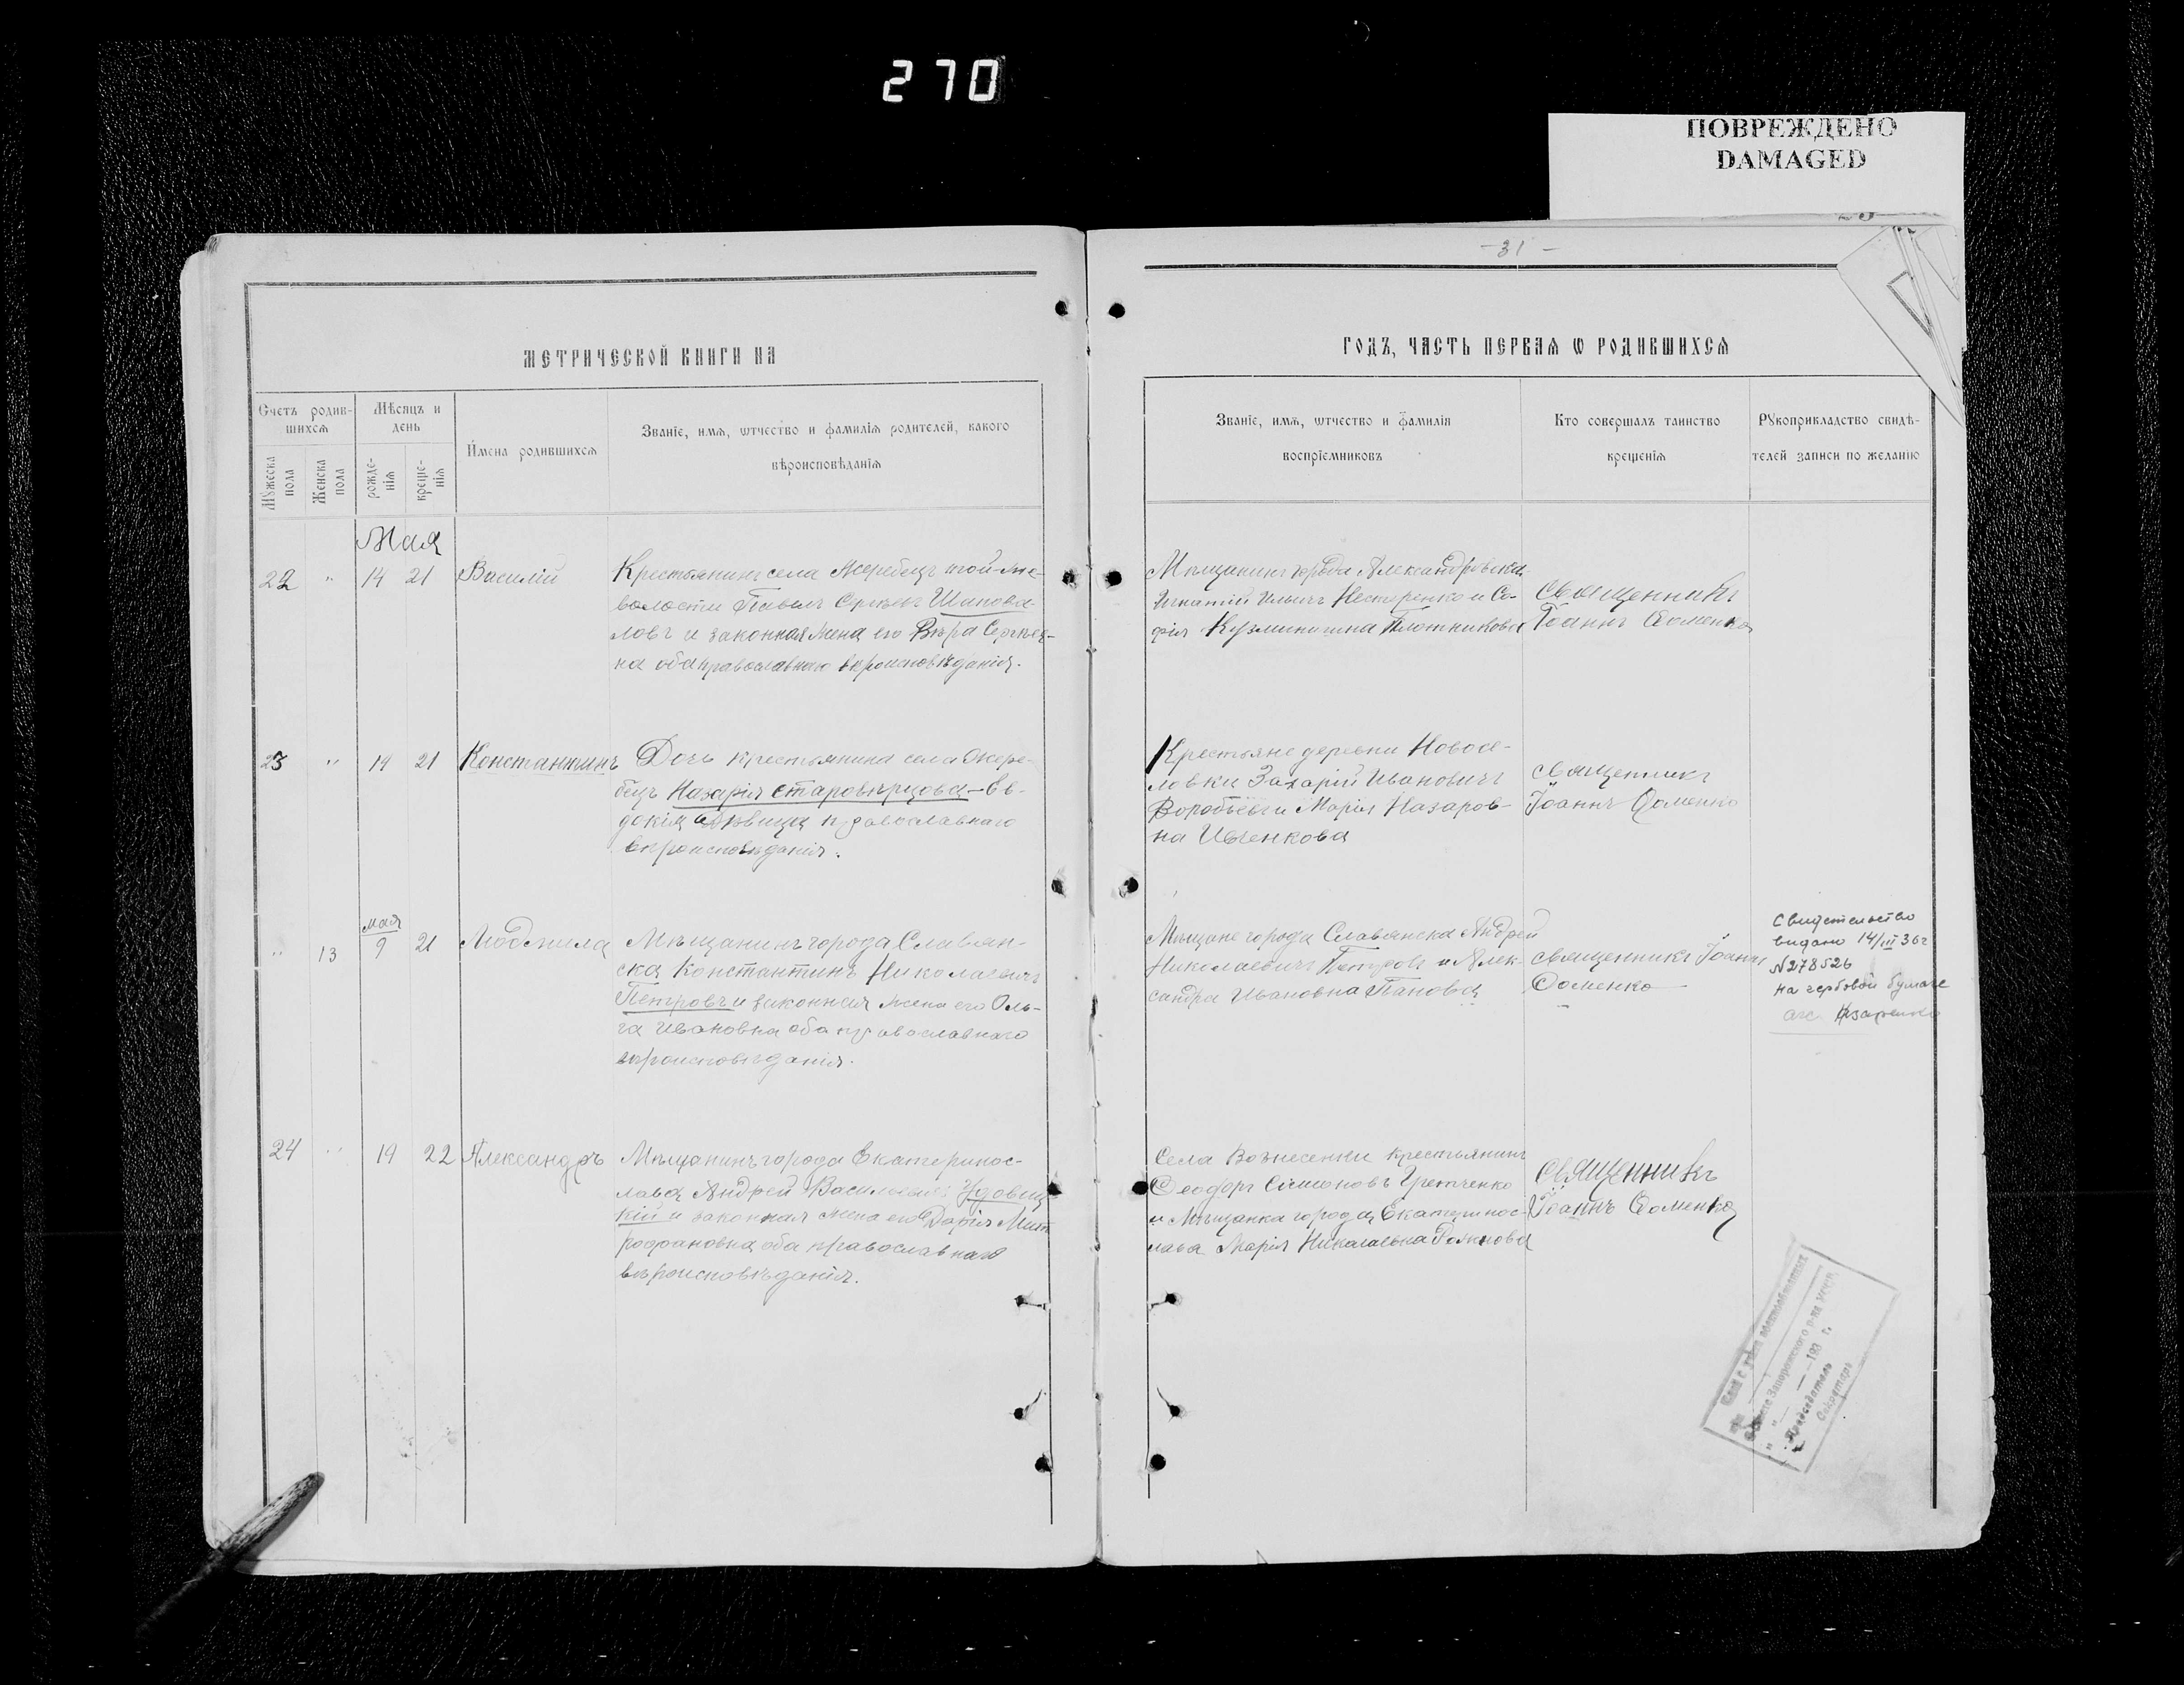 270
ПОВРЕЖДЕНО
DAMAGED
-31-
МЕТРИЧЕСКОЙ КНИГИ НА
ГОДЪ, ЧАСТЬ ПЕРВАЯ Ѡ РОДИВШИХСЯ
Счетъ родив-
шихся
Мѣсяцъ и
день
Мужеска
пола
Женска
пола
рожде-
нія
креще-
нія
Имена родившихся
Званіе, имя, ѡтчество и фамилія родителей, какого
вѣроисповѣданія
Званіе, имя, ѡтчество и фамилія
воспріемниковъ
Кто совершалъ таинство
крещенія
Рукоприкладство свидѣ-
телей записи по желанію
Мая
22 " 14 21 Василій
Крестьянинъ села Жеребецъ той-же
волости Павелъ Сергѣевъ Шапова-
ловъ и законная жена его Вѣра Сергѣев-
на оба православнаго вѣроисповѣданія.
Мѣщанинъ города Александровска
Игнатій Ильичъ Нестеренко и Со-
фія Кузминишна Плотникова
Священникъ
Іоаннъ Фоменко
23 " 19 21 Константинъ
Дочь крестьянина села Жере-
бецъ Назарія Старовѣрцова - Ев-
докія дѣвица православнаго
вѣроисповѣданія.
Крестьяне деревни Новосе-
ловки Захарій Ивановичъ
Воробьевъ и Марія Назаров-
на Ивченкова
священникъ
Іоаннъ Фоменко
" 13 мая 9 21 Людмила
Мѣщанинъ города Славян-
ска Константинъ Николаевичъ
Петровъ и законная жена его Оль-
га Ивановна оба православнаго
вѣроисповѣданія.
Мѣщане города Славянска Андрей
Николаевичъ Петровъ и Алек-
сандра Ивановна Панова
священникъ Іоаннъ
Фоменко
Свидетельство
видано 14/III 36г
N278526
на гербовой бумаге
24 " 19 22 Александръ
Мѣщанинъ города Екатеринос-
лава Андрей Васильевичъ Удовиц-
кій и законная жена его Дарія Мит-
рофановна оба православнаго
вѣроисповѣданія.
Села Вознесенки крестьянинъ
Феодоръ Симіоновъ Гретченко
и Мѣщанка города Екатеринос-
лава Марія Николаевна
Священникъ
Іоаннъ Фоменко
Запорожского
193 г.
Председатель
Секретарь